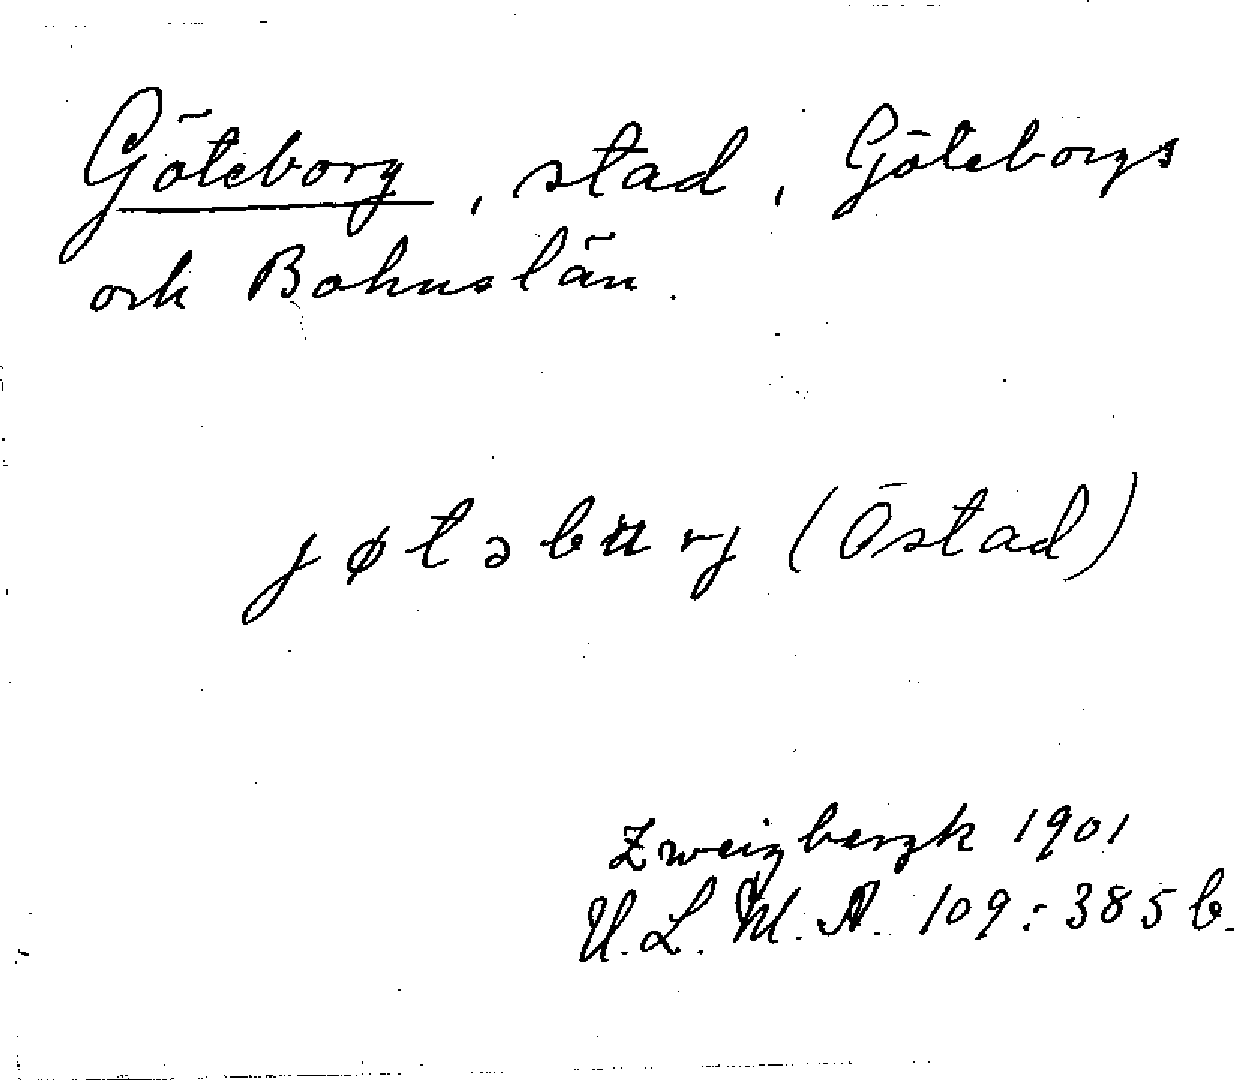 Göteborg, stad, Göteborgs
och Bohuslän.
jøtəburj (Östad)
Zweigbergk 1901
U.L.M.A. 109:385 b.